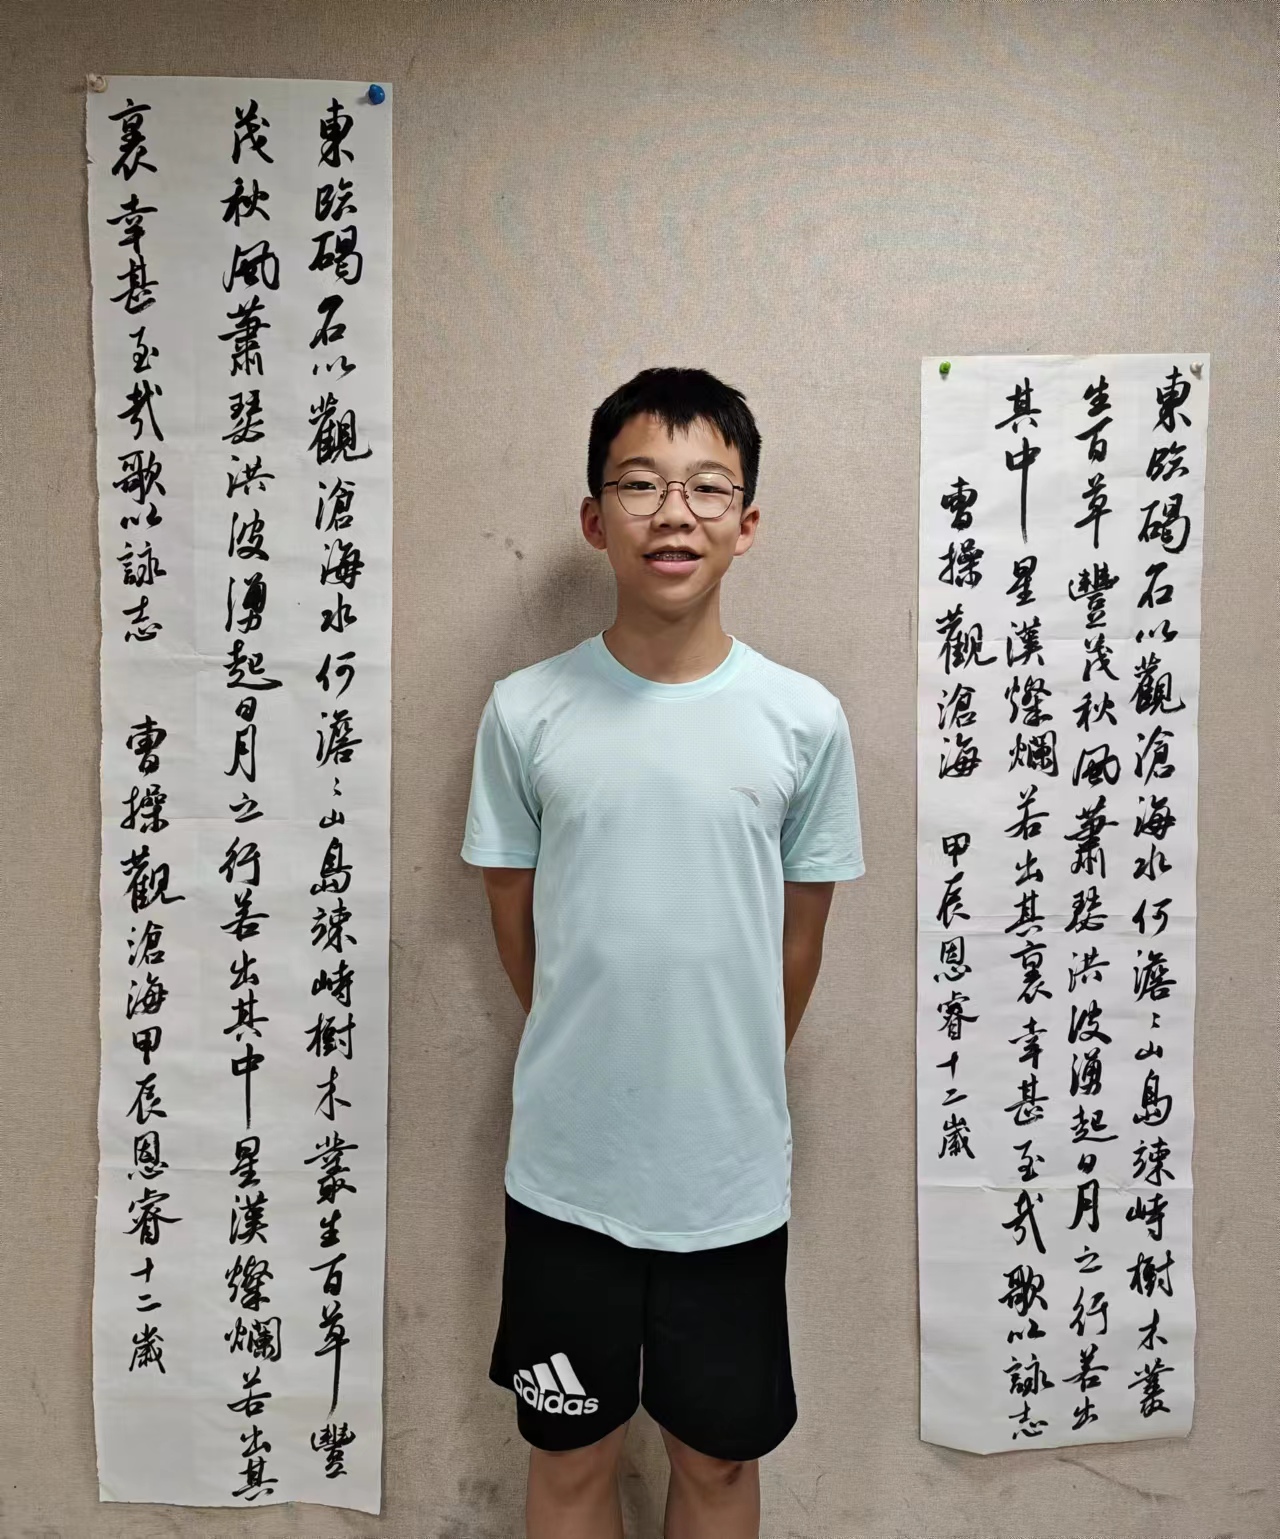 東臨碣石以觀滄海水何澹〻山島竦峙樹木叢生百草豐
茂秋風蕭瑟洪波湧起日月之行若出其中星漢燦爛若出其
裏幸甚至哉歌以詠志 曹操觀滄海甲辰恩睿十二歲
東臨碣石以觀滄海水何澹〻山島竦峙樹木叢
生百草豐茂秋風蕭瑟洪波湧起日月之行若出
其中星漢燦爛若出其裏幸甚至哉歌以詠志
曹操觀滄海 甲辰恩睿十二歲
adidas